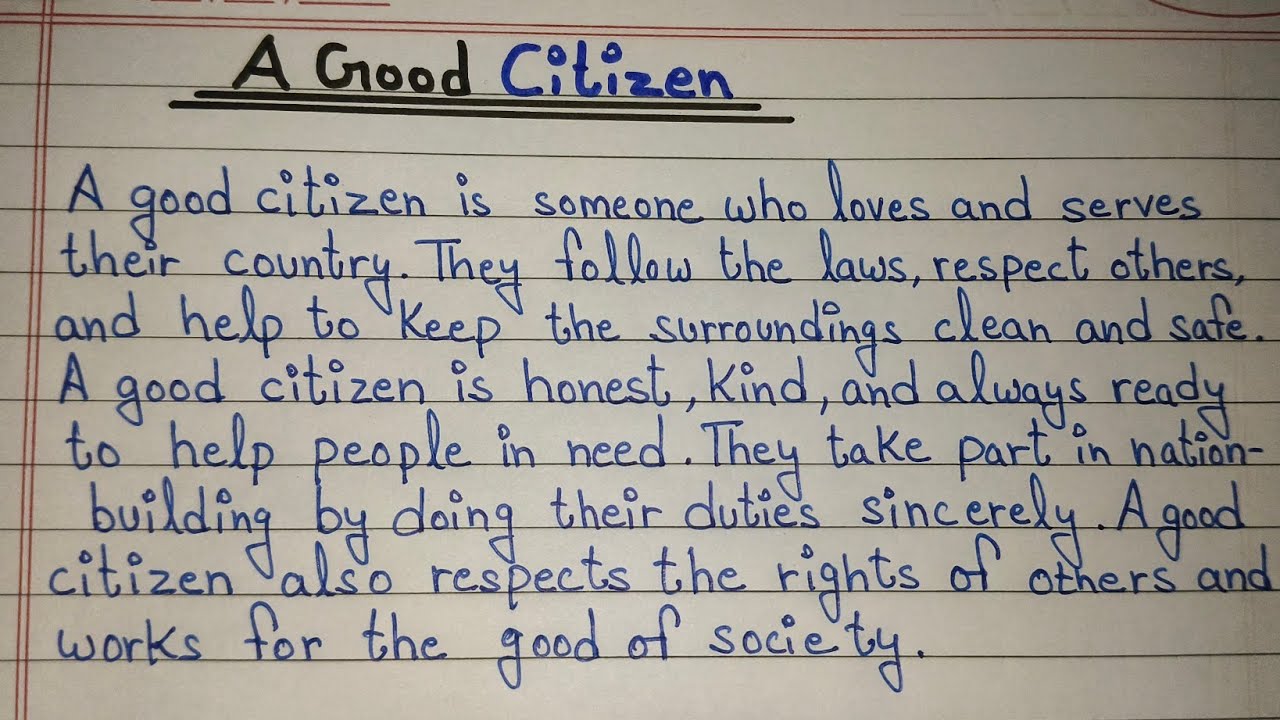 A Good Citizen
A good citizen is someone who loves and serves
their country. They follow the laws, respect others,
and help to keep the surroundings clean and safe.
A good citizen is honest, kind, and always ready
to help people in need. They take part in nation-
building by doing their duties sincerely. A good
citizen also respects the rights of others and
works for the good of society.